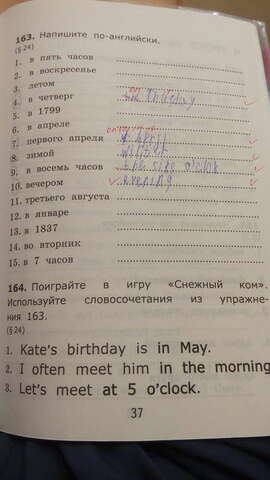 163. Напишите по-английски.
(§ 24)
1. в пять часов
2. в воскресенье
3. летом
4. в четверг
5. в 1799
6. в апреле
7. первого апреля
8. зимой
9. в восемь часов o'clock
10. вечером evening
11. третьего августа
12. в январе
13. в 1837
14. во вторник
15. в 7 часов
164. Поиграйте в игру «Снежный ком».
Используйте словосочетания из упражне-
ния 163.
(§ 24)
1. Kate's birthday is in May.
2. I often meet him in the morning
3. Let's meet at 5 o'clock.
37